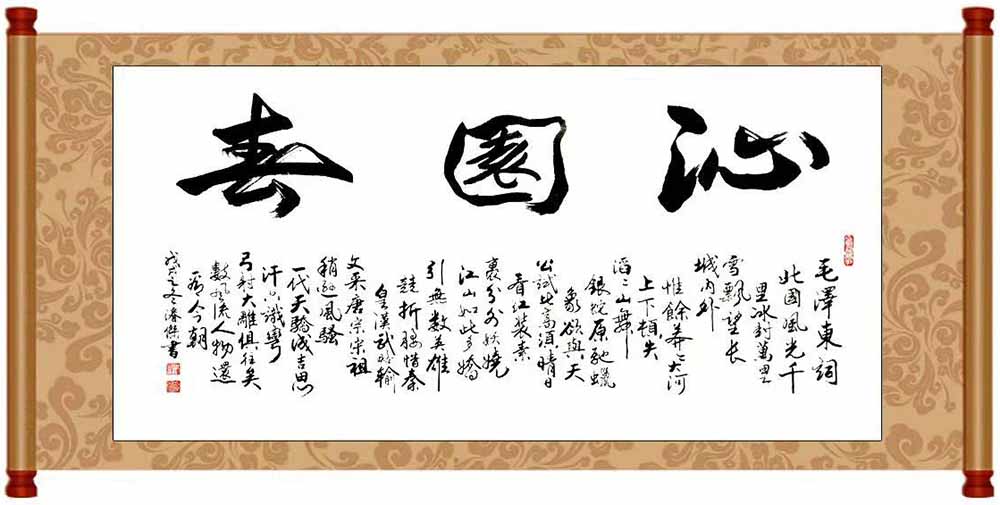 沁園春
毛澤東詞
北國風光千
里冰封萬里
雪飄望長
城內外
惟餘莽々大河
上下頓失
滔々山舞
銀蛇原馳蠟
象欲與天
公試比高須晴日
看红裝素
裹分外妖嬈
江山如此多嬌
引無數英雄
競折腰惜秦
皇漢武略輸
文采唐宗宋祖
稍遜風騷
一代天驕成吉思
汗只識彎
弓射大雕俱往矣
數風流人物還
看今朝
戊戌之冬濬傑書